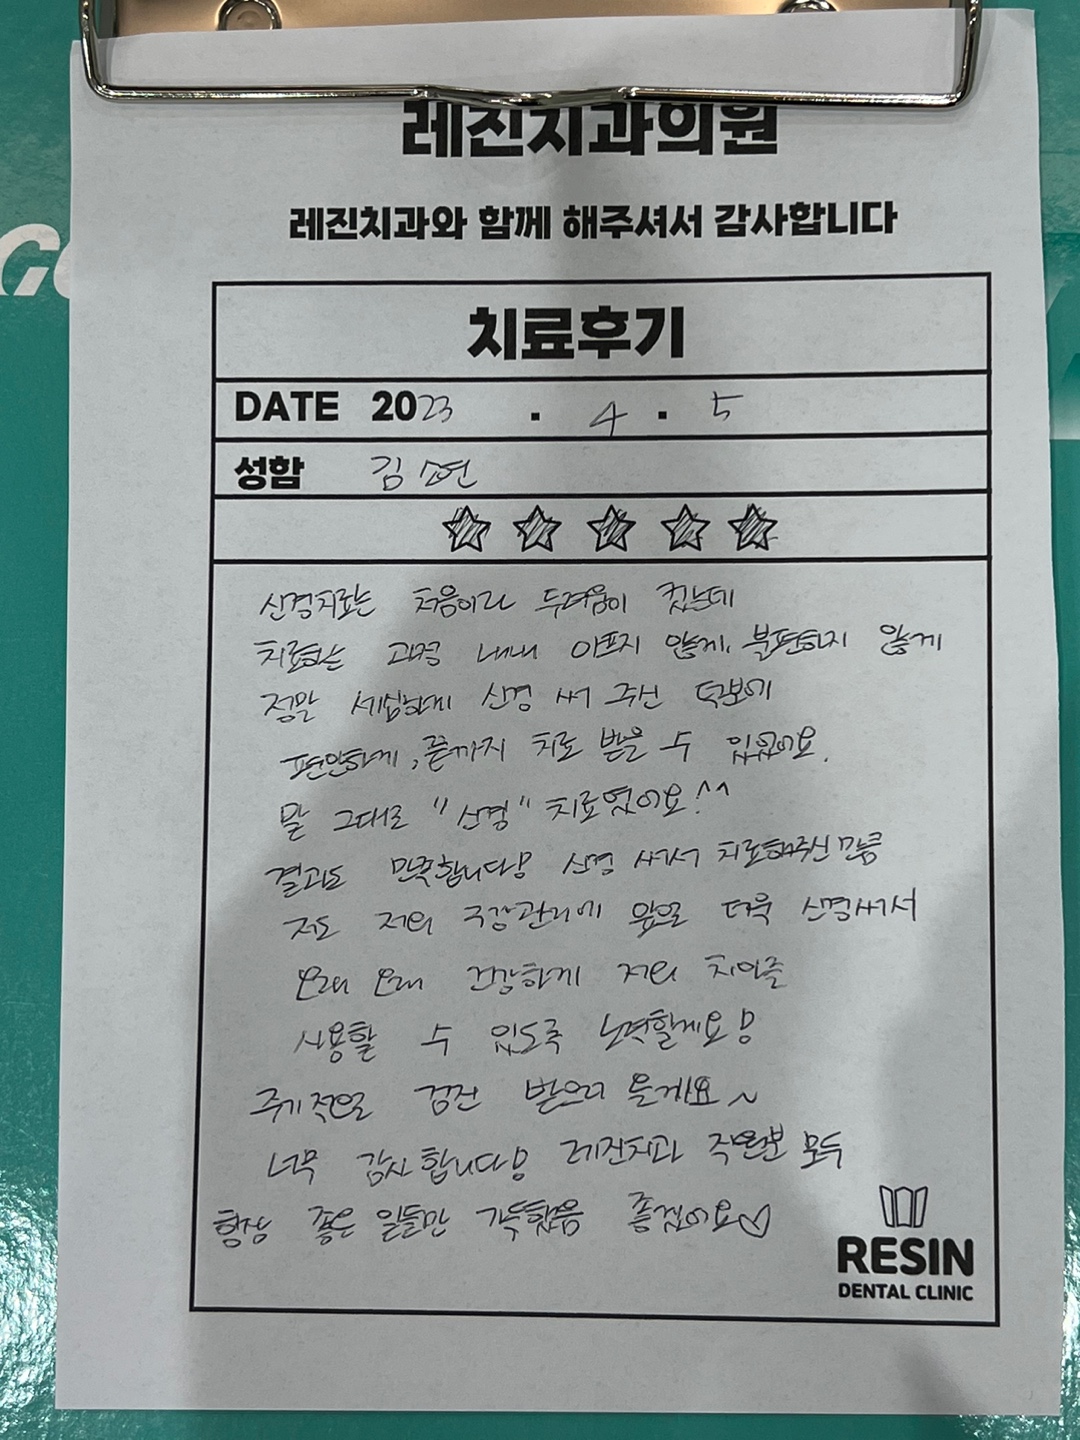 레진치과의원
레진치과와 함께 해주셔서 감사합니다
치료후기
DATE 2023 . 4 . 5
성함 김
신경치료는 처음이라 두려움이 컸는데
치료하는 과정 내내 아프지 않게, 불편하지 않게
정말 세심하게 신경 써 주신 덕분에
편안하게, 끝까지 치료 받을 수 있었어요.
말 그대로 "신경" 치료였어요!^^
결과도 만족합니다! 신경 써서 치료해주신 만큼
저도 저의 구강관리에 앞으로 더욱 신경써서
오래 오래 건강하게 저의 치아를
사용할 수 있도록 노력할게요!
주기적으로 검진 받으러 올게요~
너무 감사합니다! 레진치과 직원분 모두
항상 좋은 일들만 가득했음 좋겠어요♡
RESIN
DENTAL CLINIC